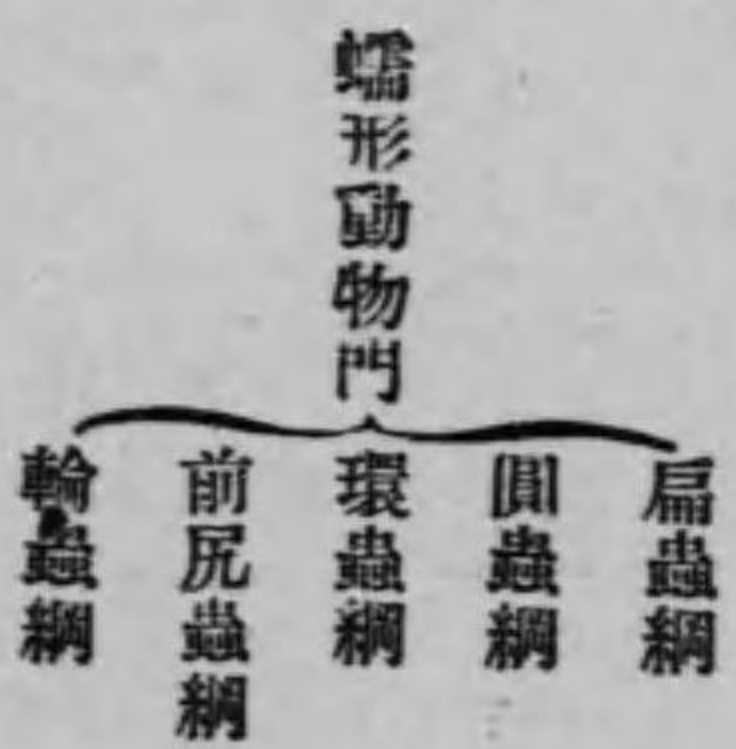 蠕形動物門
扁蟲綱
圓蟲綱
環蟲綱
前尻蟲綱
輪蟲綱